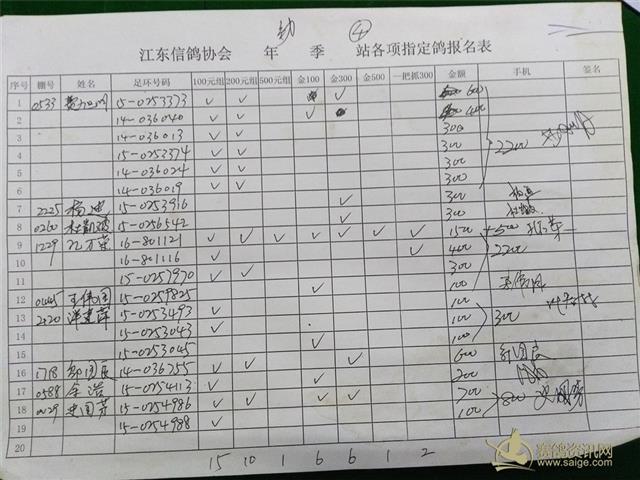 幼 ④
江东信鸽协会 年 季 站各项指定鸽报名表
序号 棚号 姓名 足环号码 100元组 200元组 500元组 金100 金300 金500 一把抓300 金额 手机 签名
1 0533 15-0253373 ✓ ✓ ✓ 600
2 14-036040 ✓ ✓ ✓ 400
3 14-036013 ✓ ✓ 300
4 15-0253374 ✓ ✓ 300 2200
5 14-036024 ✓ ✓ 300
6 14-036019 ✓ ✓ 300
7 2225 杨 15-0253916 ✓ 300
8 0260 杜凯 15-0256542 ✓ 300
9 1229 孔万荣 16-801121 ✓ ✓ ✓ ✓ ✓ ✓ ✓ 1500
10 16-801116 ✓ ✓ 400 2200
11 15-0257970 ✓ ✓ 300
12 王伟国 15-0259825 ✓ 100
13 2220 15-0253493 ✓ 100
14 15-0253043 ✓ 100 300
15 15-0253045 ✓ 100
16 1718 邬国良 14-036755 ✓ ✓ ✓ 600
17 0588 余浩 15-0254113 ✓ ✓ 200
18 0129 史国芳 15-0254986 ✓ ✓ ✓ ✓ 700 800
19 15-0254988 ✓ 100
20
15 10 1 6 6 1 2
赛鸽资讯网
www.saige.com